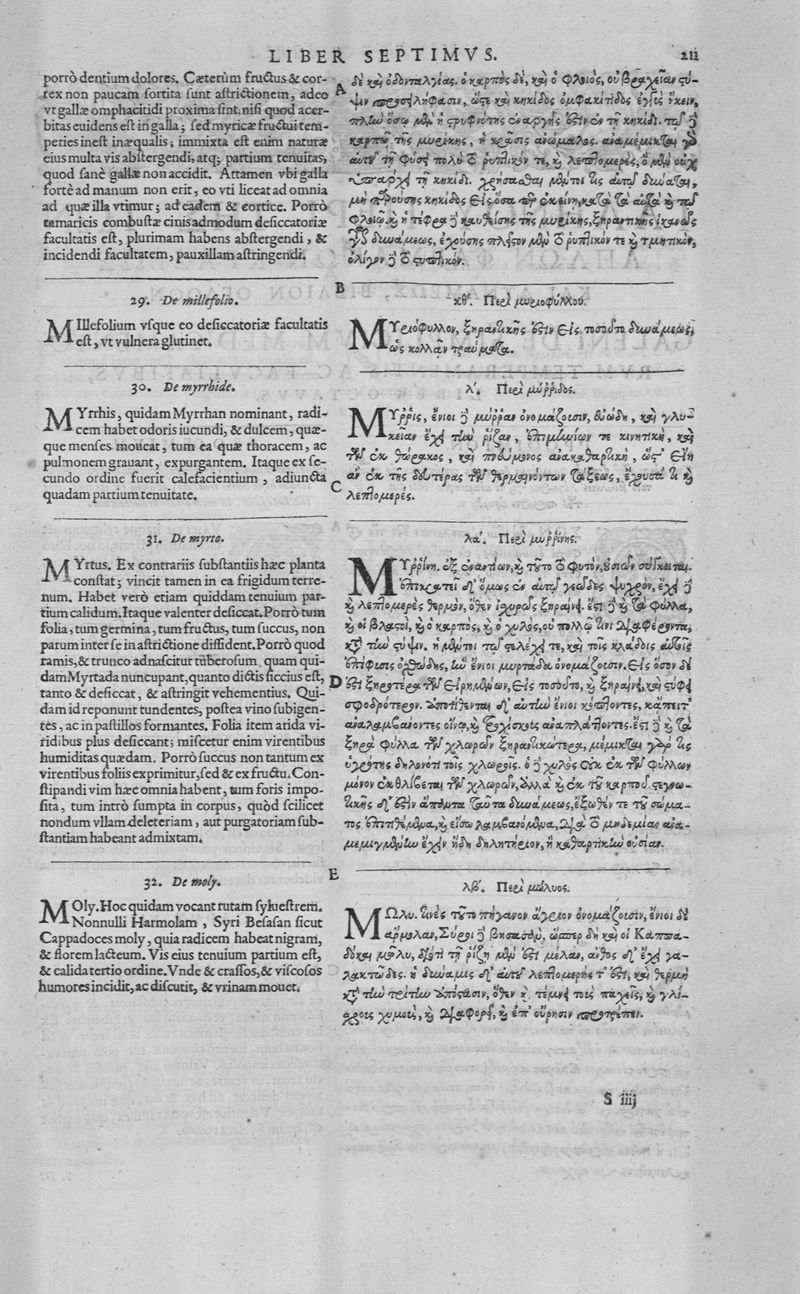 LIBER SEPTIMVS.
211
porrò dentium dolores. Cæterùm fructus & cor-
rex non paucam sortita sunt astrictionem, adeo
vt gallæ omphacitidi proxima sint: nisi quod acer-
bitas euidens est in galla; sed myricæ fructui tem-
peries inest inæqualis; immixta est enim naturæ
eius multa vis abstergendi, atq; partium tenuitas,
quod sanè gallæ non accidit. Attamen vbi galla
fortè ad manum non erit, eo vti liceat ad omnia
ad quæ illa vtimur; ad eadem & cortice. Porrò
tamaricis combustæ cinis admodum desiccatoriæ
facultatis est, plurimam habens abstergendi, &
incidendi facultatem, pauxillam astringendi.
29. De millefolio.
MIllefolium vsque eo desiccatoriæ facultatis
est, vt vulnera glutinet.
30. De myrrhide.
MYrrhis, quidam Myrrhan nominant, radi-
cem habet odoris iucundi, & dulcem, quæ-
que menses moueat, tum ea quæ thoracem, ac
pulmonem grauant, expurgantem. Itaque ex se-
cundo ordine fuerit calefacientium, adiuncta
quadam partium tenuitate.
31. De myrto.
MYrtus. Ex contrariis substantiis hæc planta
constat; vincit tamen in ea frigidum terre-
num. Habet verò etiam quiddam tenuium par-
tium calidum. Itaque valenter desiccat. Porrò tum
folia, tum germina, tum fructus, tum succus, non
parum inter se in astrictione diffident. Porrò quod
ramis, & trunco adnascitur tuberosum, quam qui-
dam Myrtada nuncupant, quanto dictis siccius est,
tanto & desiccat, & astringit vehementius. Qui-
dam id reponunt tundentes, postea vino subigen-
tes, ac in pastillos formantes. Folia item arida vi-
ridibus plus desiccant; miscetur enim virentibus
humiditas quædam. Porrò succus non tantum ex
virentibus foliis exprimitur, sed & ex fructu. Con-
stipandi vim hæc omnia habent, tum foris impo-
sita, tum intrò sumpta in corpus, quòd scilicet
nondum vllam deleteriam, aut purgatoriam sub-
stantiam habeant admixtam.
32. De moly.
MOly. Hoc quidam vocant rutam syluestrem.
Nonnulli Harmolam, Syri Besasan sicut
Cappadoces moly, quia radicem habeat nigram,
& florem lacteum. Vis eius tenuium partium est,
& calida tertio ordine. Vnde & crassos, & viscosos
humores incidit, ac discutit, & vrinam mouet.
A
δὲ καὶ ὀδονταλγίας. ὁ καρπὸς δὲ, καὶ ὁ φλοιὸς, οὐ βραχεῖαν στύ-
ψιν προσείληφασιν, ὥστε καὶ κηκῖδος ὀμφακίτιδος ἐγγὺς ἥκειν,
πλὴν ὅσῳ μὲν ἡ στρυφνότης ἐναργής ἐστιν ἐν τῇ κηκῖδι. τῷ δὲ
καρπῷ τῆς μυρίκης, ἡ κρᾶσις ἀνώμαλος. ἀναμέμικται γὰρ
αὐτοῦ τῇ φύσει πολὺ τὸ ῥυπτικόν τε, καὶ λεπτομερὲς, ὃ μὲν οὐχ
ὑπάρχει τῇ κηκῖδι. χρήσασθαι μέντοι τις αὐτῷ δύναται,
μὴ παρούσης κηκῖδος εἰς ὅσα περ ἐκείνῃ, κατὰ τὰ αὐτὰ καὶ τῷ
φλοιῷ. καὶ ἡ τέφρα δὲ καυθείσης τῆς μυρίκης, ξηραντικῆς ἱκανῶς
ἐστι δυνάμεως, ἐχούσης πλεῖστον μὲν τὸ ῥυπτικόν τε καὶ τμητικὸν,
ὀλίγον δὲ τὸ στυπτικόν.
B
κθʹ. Περὶ μυριοφύλλου.
ΜΥριόφυλλον, ξηραντικῆς ἐστιν εἰς τοσοῦτο δυνάμεως,
ὡς κολλᾶν τραύματα.
λʹ. Περὶ μύῤῥιδος.
ΜΥῤῥὶς, ἔνιοι δὲ μύῤῥαν ὀνομάζουσιν, εὐώδη, καὶ γλυ-
κεῖαν ἔχει τὴν ῥίζαν, ἐπιμηνίων τε κινητικὴ, καὶ
τῶν ἐκ θώρακος, καὶ πνεύμονος ἀνακαθαρτικὴ, ὥστ' εἴη
C
ἂν ἐκ τῆς δευτέρας τῶν θερμαινόντων τάξεως, ἔχουσά τι καὶ
λεπτομερές.
λαʹ. Περὶ μυῤῥίνης.
ΜΥῤῥίνη. ἐξ ἐναντίων, καὶ τοῦτο τὸ φυτὸν, οὐσιῶν σύγκειται.
ἐπικρατεῖ δ' ὅμως ἐν αὐτῷ γεῶδες ψυχρὸν, ἔχει δὲ
καὶ λεπτομερὲς θερμὸν, ὅθεν ἰσχυρῶς ξηραίνει. ἔστι δὲ καὶ τὰ φύλλα,
καὶ οἱ βλαστοὶ, καὶ ὁ καρπὸς, καὶ ὁ χυλὸς, οὐ πολλῷ τινι διαφέροντα,
κατὰ τὴν στύψιν. ἡ μέντοι τῷ στελέχει τε, καὶ τοῖς κλάδοις αὐτῆς
ἐπίφυσις ὀχθώδης, ἣν ἔνιοι μυρτάδα ὀνομάζουσιν. εἰς ὅσον δὲ
D
ἐστι ξηροτέρα τῶν εἰρημένων, εἰς τοσοῦτο, καὶ ξηραίνει, καὶ στύφει
σφοδρότερον. ἀποτίθενται δ' αὐτὴν ἔνιοι κόπτοντες, κἄπειτ'
ἀναλαμβάνοντες οἴνῳ, καὶ τροχίσκους ἀναπλάττοντες. ἔστι δὲ καὶ τὰ
ξηρὰ φύλλα τῶν χλωρῶν ξηραντικώτερα, μέμικται γάρ τις
ὑγρότης δηλονότι τοῖς χλωροῖς. ὁ δὲ χυλὸς οὐκ ἐκ τῶν φύλλων
μόνον ἐκθλίβεται τῶν χλωρῶν, ἀλλὰ καὶ ἐκ τοῦ καρποῦ. στεγνω-
τικῆς δ' ἐστὶν ἅπαντα ταῦτα δυνάμεως, ἔξωθέν τε τοῦ σώμα-
τος ἐπιτιθέμενα, καὶ εἴσω λαμβανόμενα, διὰ τὸ μηδεμίαν ἀνα-
μεμιγμένην ἔχειν ἤδη δηλητήριον, ἢ καθαρτικὴν οὐσίαν.
E
λβʹ. Περὶ μώλυος.
ΜΩλυ. τινὲς τοῦτο πήγανον ἄγριον ὀνομάζουσιν, ἔνιοι δὲ
ἅρμολαν, Σύροι δὲ βησασὰν, ὥσπερ δὴ καὶ οἱ Καππα-
δόκαι μῶλυ, διότι τῇ ῥίζῃ μέν ἐστι μέλαν, ἄνθος δ' ἔχει γα-
λακτῶδες. ἡ δύναμις δ' αὐτοῦ λεπτομερής τ' ἐστι, καὶ θερμὴ
κατὰ τὴν τρίτην ἀπόστασιν, ὅθεν καὶ τέμνει τοὺς παχεῖς, καὶ γλί-
σχρους χυμοὺς, καὶ διαφορεῖ, καὶ ἐπ' οὔρησιν προτρέπει.
S iiij